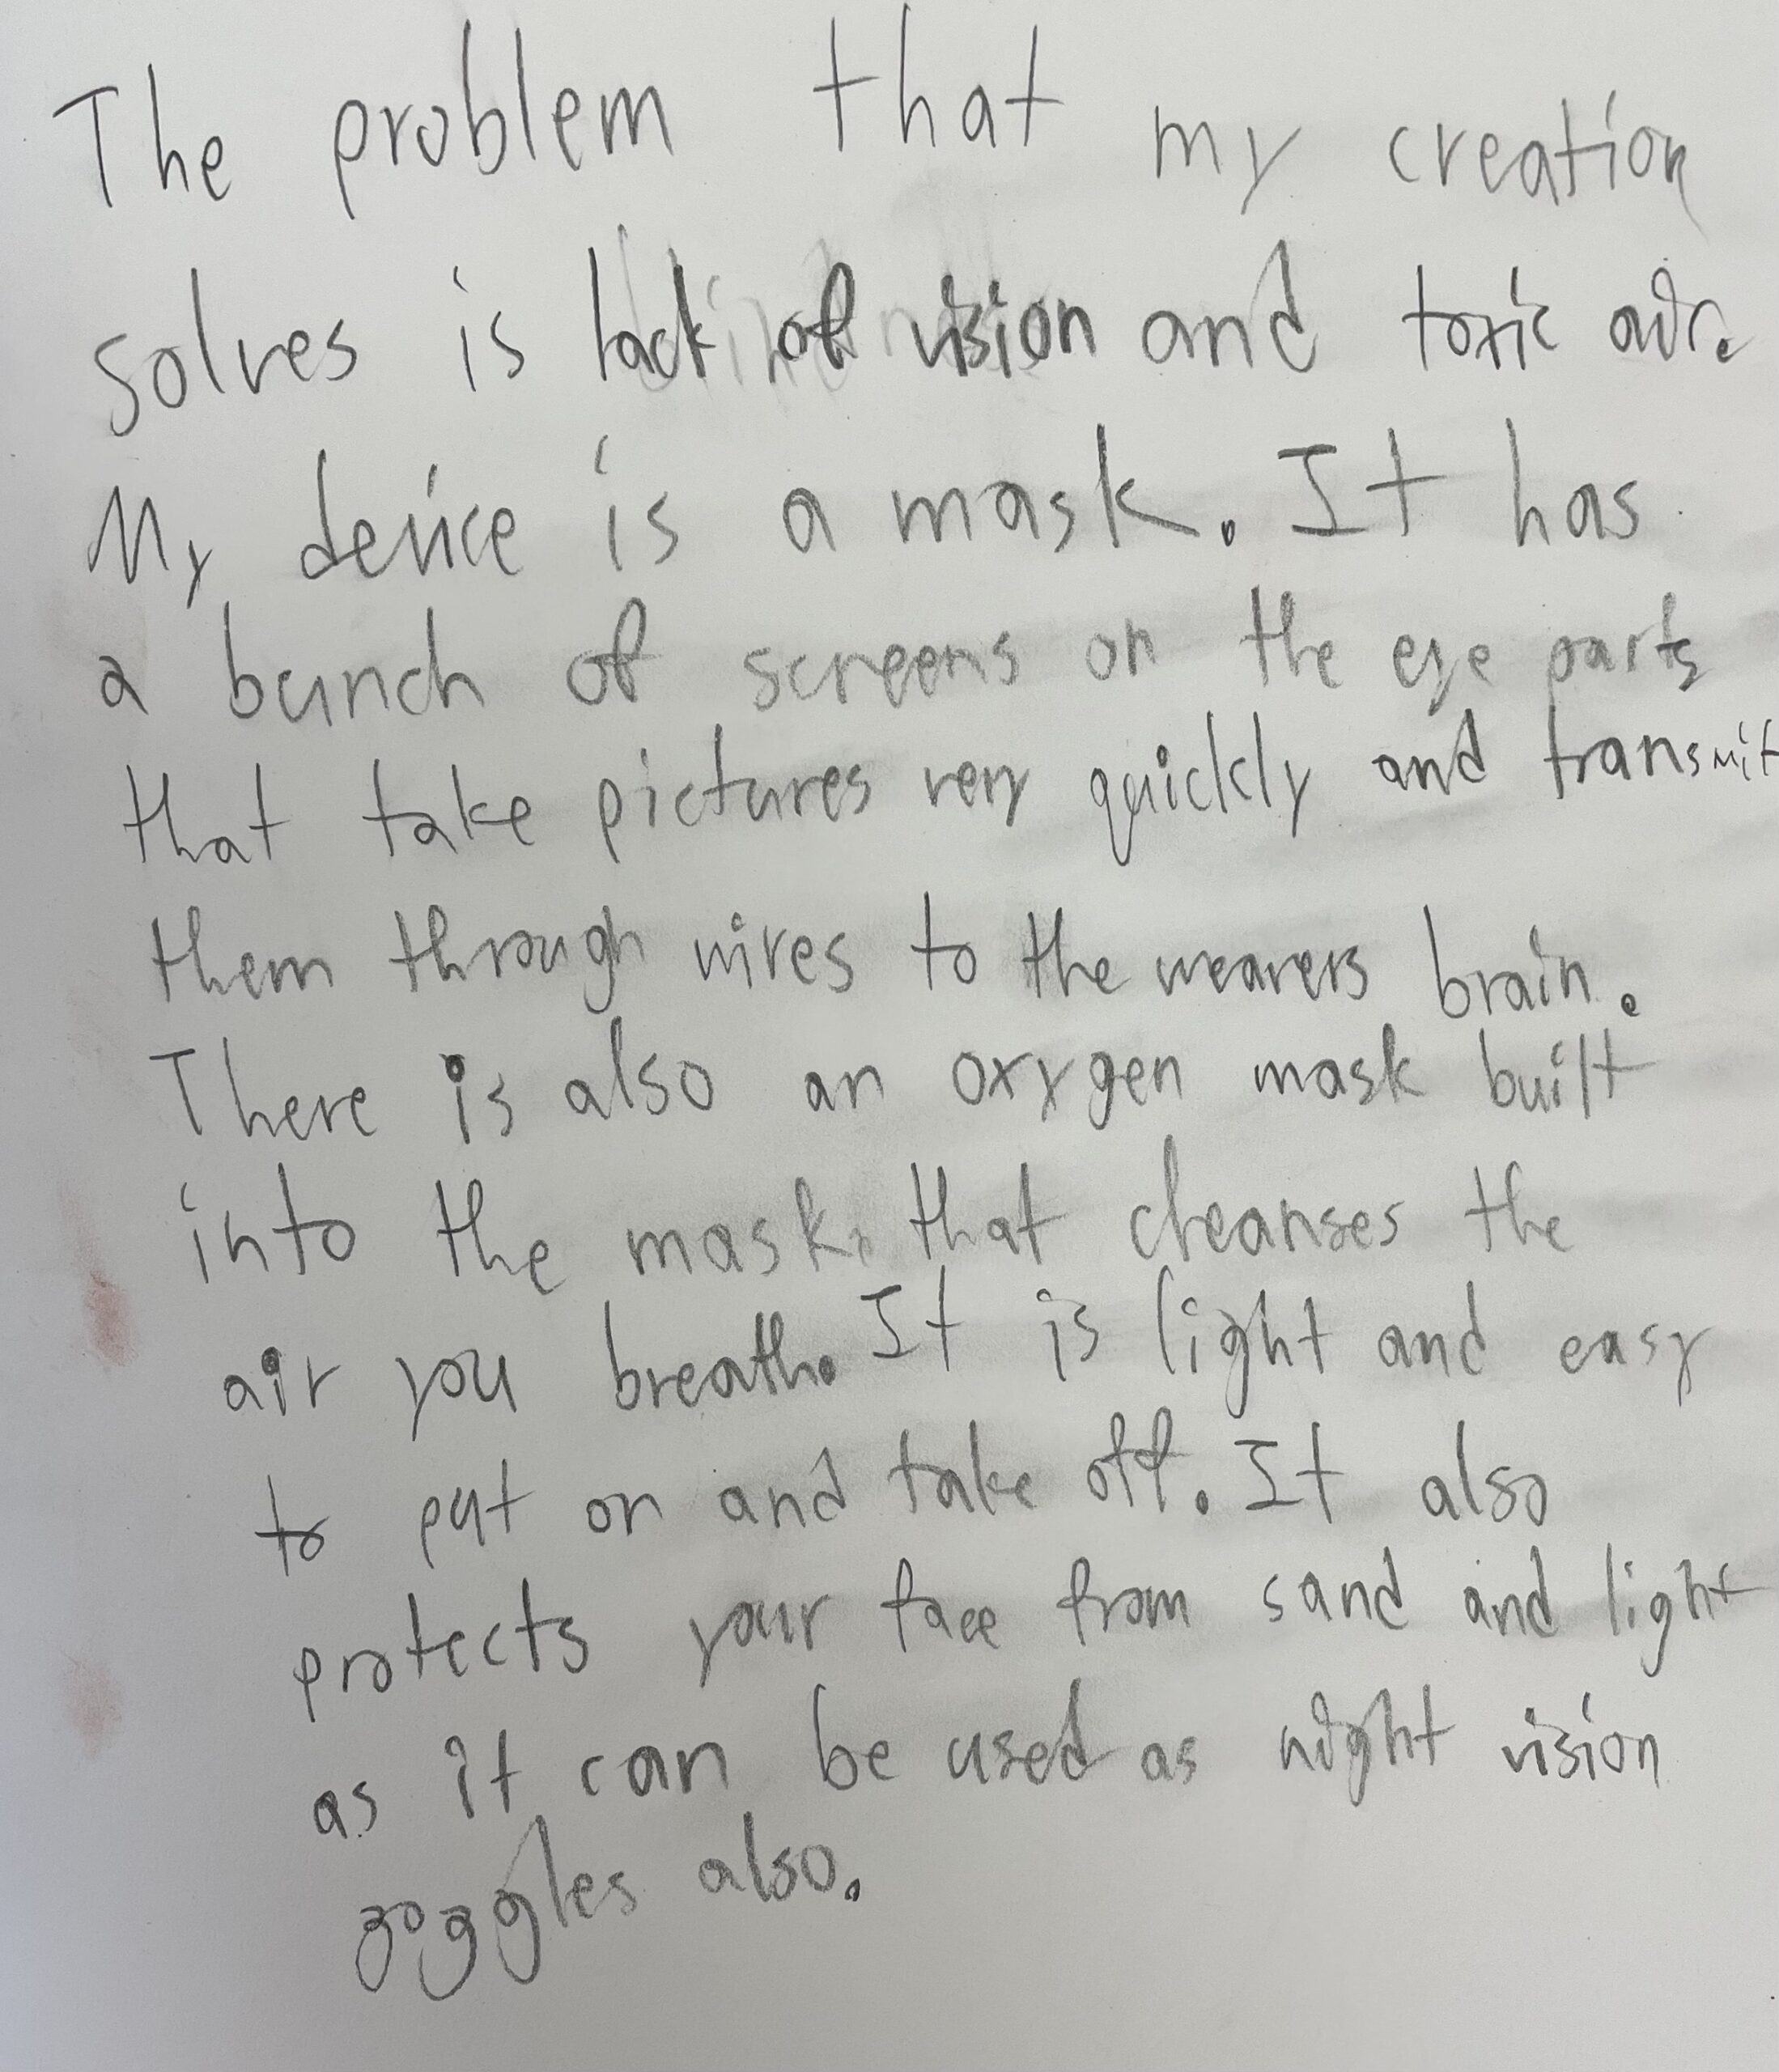 The problem that my creation
solves is lack of vision and toxic air.
My device is a mask. It has
a bunch of screens on the eye parts
that take pictures very quickly and transmit
them through wires to the wearers brain.
There is also an oxygen mask built
into the mask that cleanses the
air you breath. It is light and easy
to put on and take off. It also
protects your face from sand and light
as it can be used as night vision
goggles also.